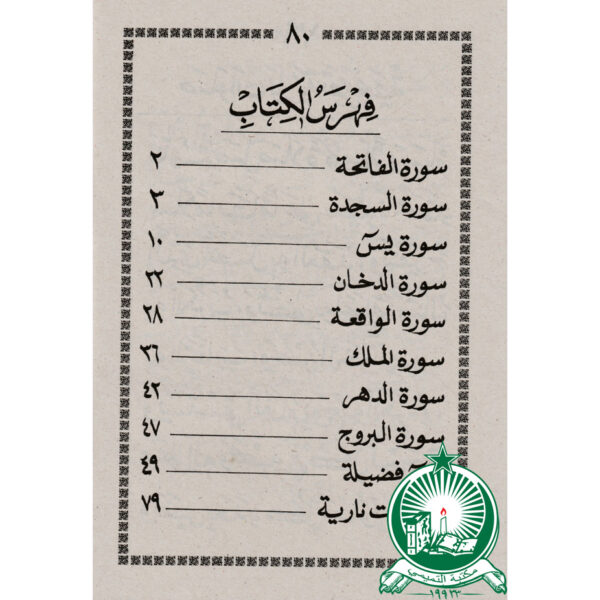 ٨٠
فِهْرَسُ الكِتَابِ
سورة الفاتحة ٢
سورة السجدة ٣
سورة يسٓ ١٠
سورة الدخان ٢٢
سورة الواقعة ٢٨
سورة الملك ٣٦
سورة الدهر ٤٢
سورة البروج ٤٧
فضيلة ٤٩
نارية ٧٩